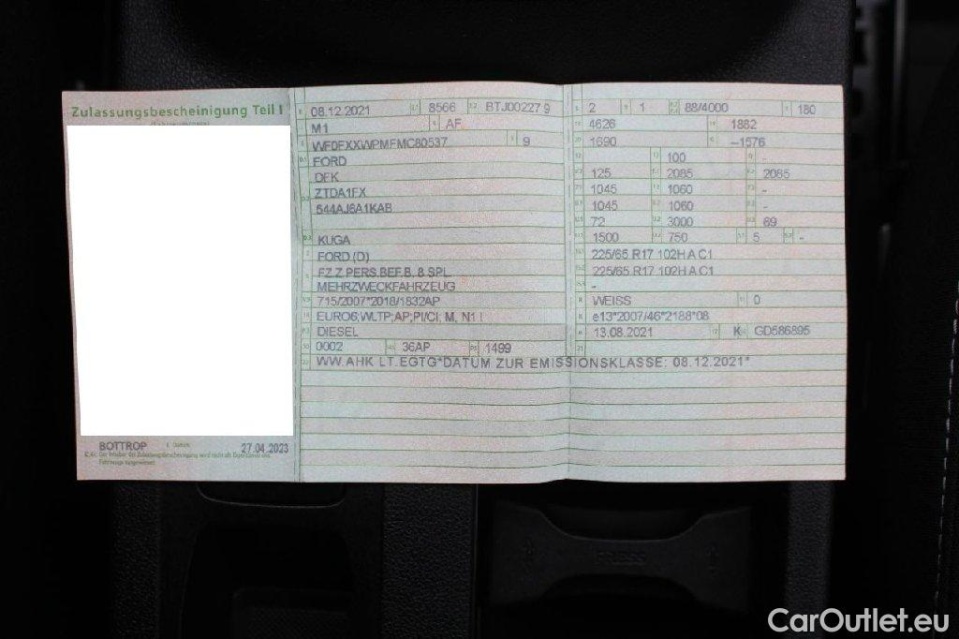 Zulassungsbescheinigung Teil I
BOTTROP
27.04.2023
08.12.2021 8566 BTJ00227 9
M1 AF
WF0FXXWPMFMC80537 9
FORD
DFK
ZTDA1FX
544AJ6A1KAB
KUGA
FORD (D)
FZ.Z.PERS.BEF.B. 8 SPL.
MEHRZWECKFAHRZEUG
715/2007*2018/1832AP
EURO6;WLTP;AP;PI/CI; M, N1 I
DIESEL
0002 36AP 1499
WW.AHK LT.EGTG*DATUM ZUR EMISSIONSKLASSE: 08.12.2021*
2 1 88/4000 180
4626 1882
1690 –1576
- 100 -
125 2085 2085
1045 1060 -
1045 1060 -
72 3000 69
1500 750 5 -
225/65 R17 102H A C1
225/65 R17 102H A C1
-
WEISS 0
e13*2007/46*2188*08
13.08.2021 K GD586895
CarOutlet.eu